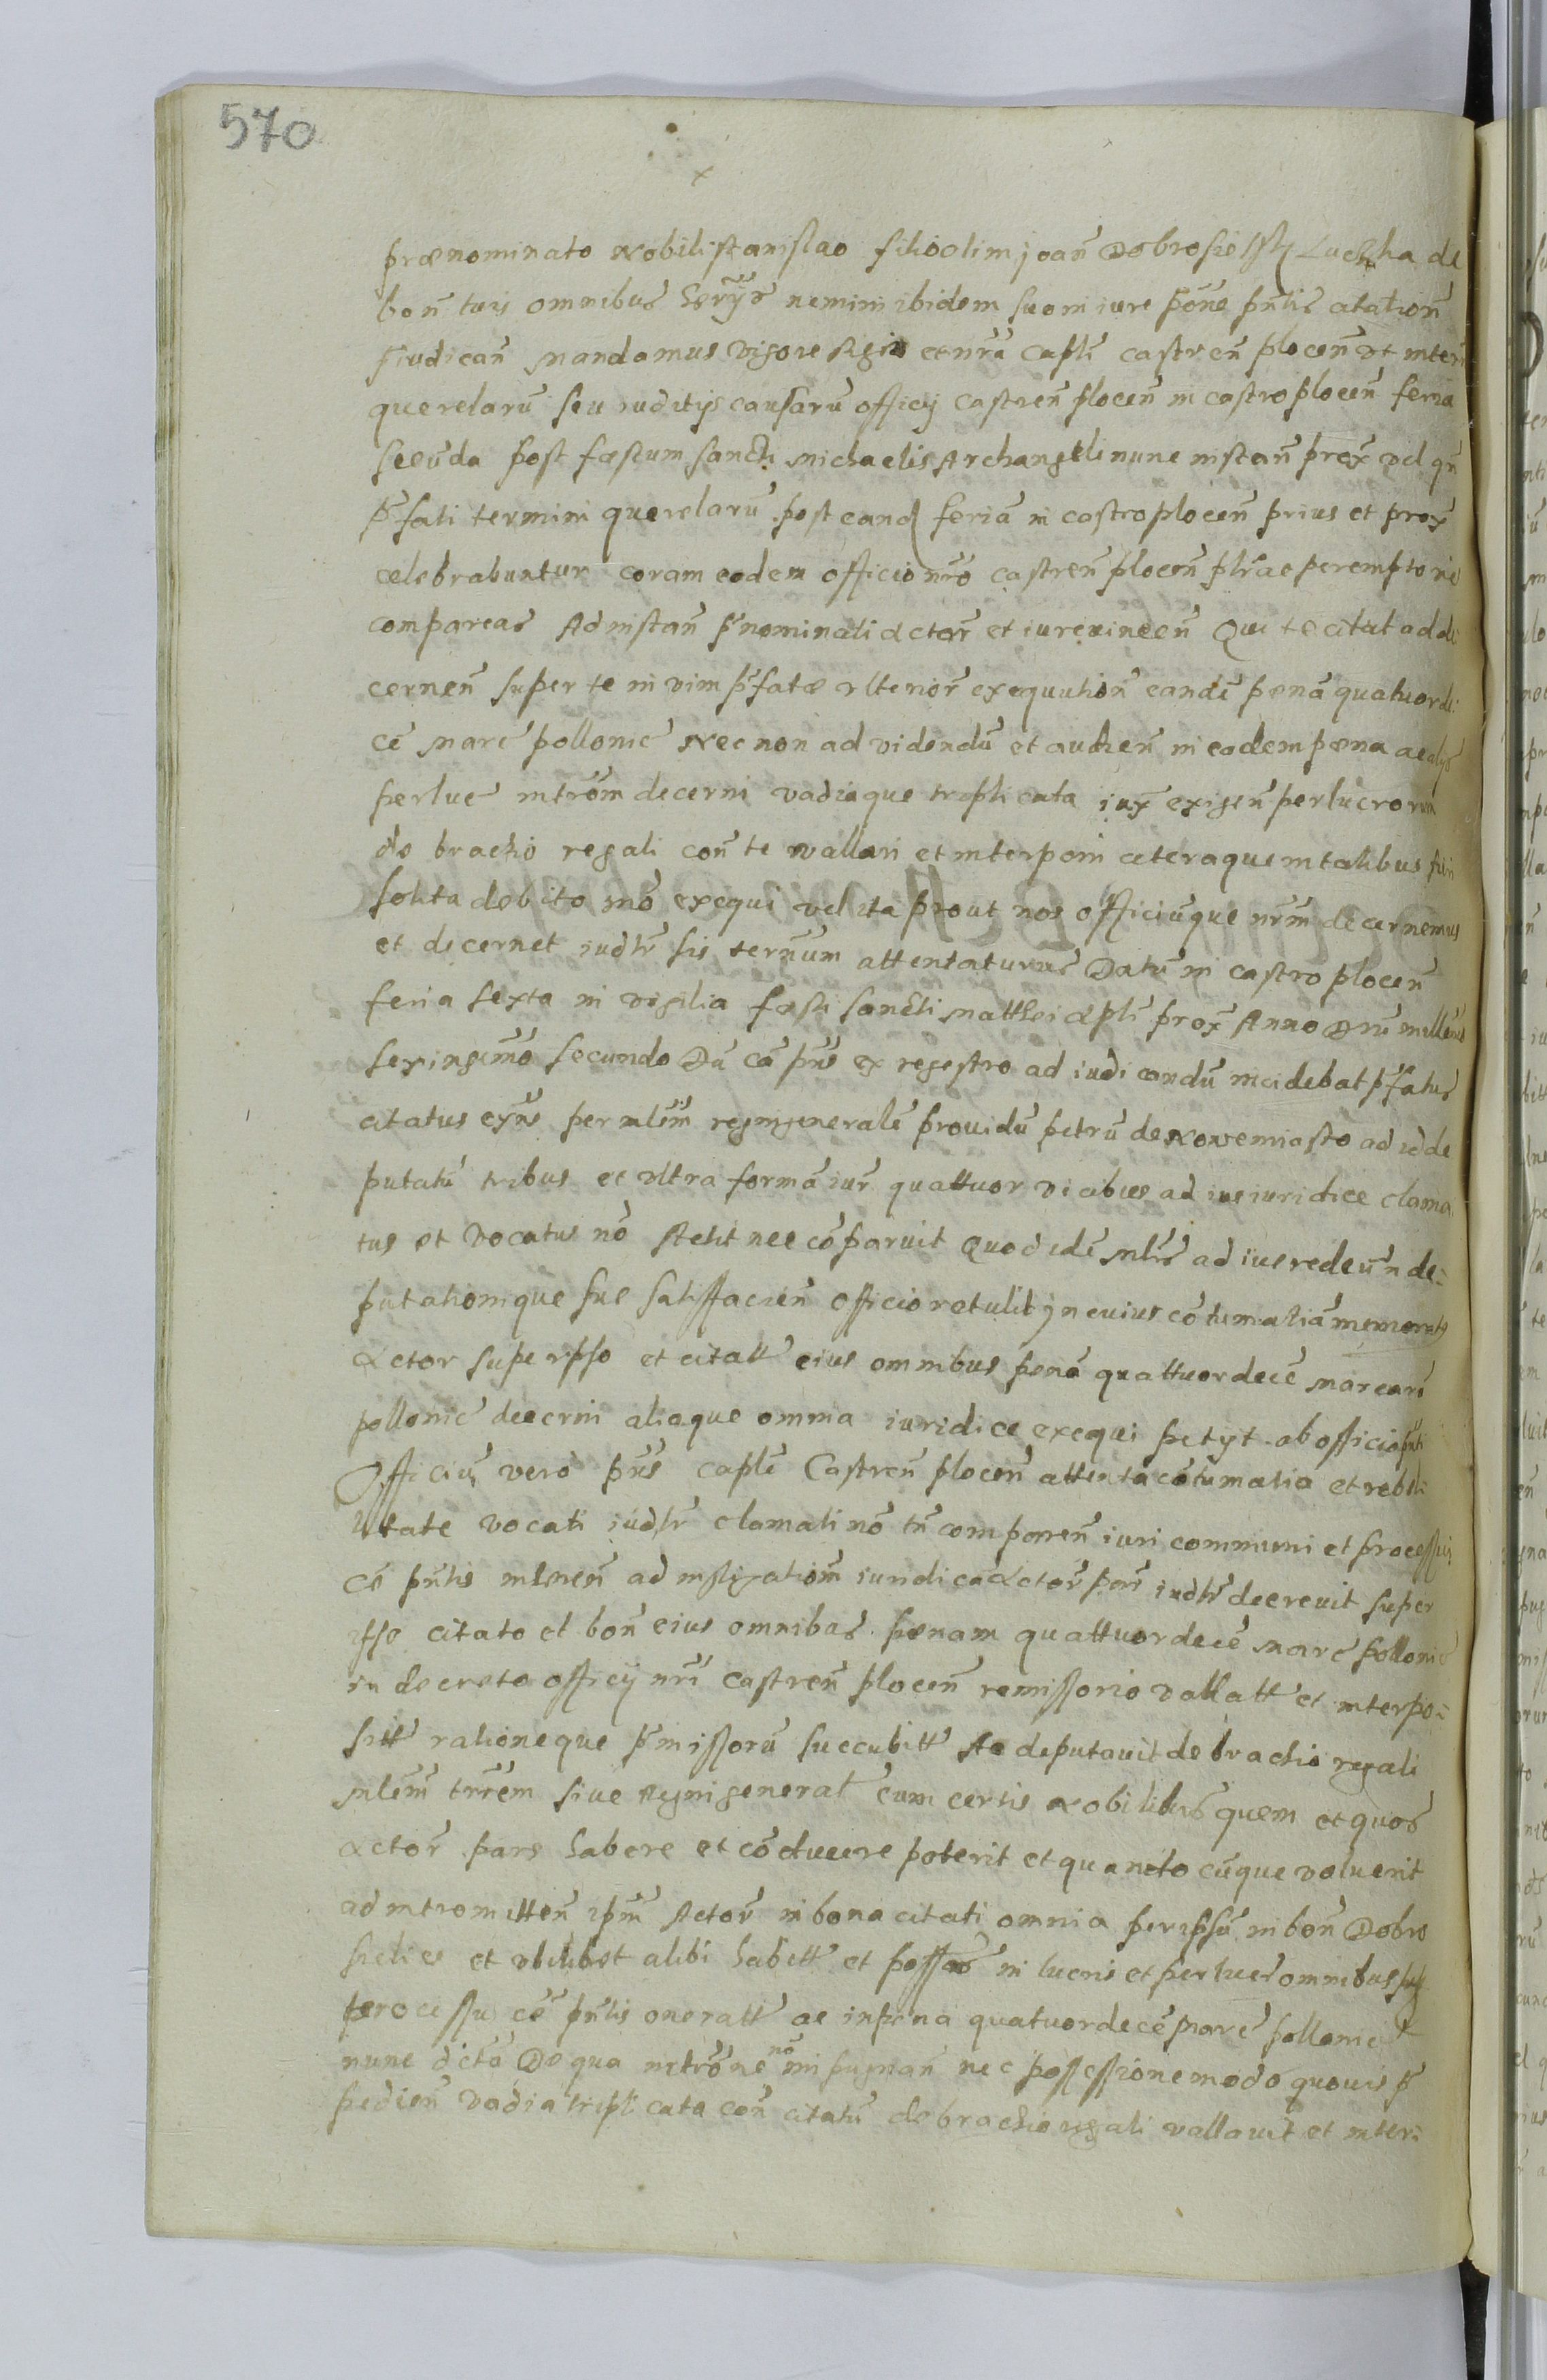 570
prænominato Nobili Stanislao filio olim Joañ Dobrosielsky Luchta de
boñ tuis omnibus nemini ibidem suo in iure p̄n̄tis citatioñ
Iudicañ Mandamus vigore Regia et nr̃a Capti castreñ Ploceñ ut in
querelarũ seu iuditijs causarũ officij Castreñ Ploceñ in castro Ploceñ feria
secũda post fæstum sancti Michaelis Archangeli nunc instañ prox vel qñ
p̃fati termini querelarũ post eand feriã in castro Ploceñ prius et prox
celebrabuntur coram eodem officio nr̃o castreñ Ploceñ pl̃r ac peremptorie
compareas Ad instañ p̃nominati Actor̃ et iurevinceñ Qui te citat ad de
cerneñ super te in vim p̃fatæ ulterior̃ exequutioñ eandẽ pœnã quatuorde
cẽ Marc̃ pollonic̃ Nec non ad videndũ et audieñ in eadem pœna ac alijs
perluc̃ intrõm decerni vadiaque triplicata iux exigeñ perlucrorum
de brachio regali coñ te vallari et interponi ceteraque in talibus fieri
solita debito mõ exequi vel ita prout nos officiũque nr̃m decernemus
et decernet iudlr̃ sis ternum attentaturus Datũ in castro Ploceñ
feria sexta in vigilia fæsti sancti Matthei Apli prox Anno Dñi milleñs
sexingemõ secundo Dũ cã p̃ns ex regestro ad iudicandũ incidebat p̃fatus
citatus per mlẽm regnigeneralẽ prouidũ Petrũ de Novemiasto ad id de
putatũ tribus et ultra formã iur̃ quattuor vicibus ad ius iuridice clama
tus et vocatus nõ stetit nec cõparuit Quod idẽ Mlr̃s ad ius redeuñ de=
putationique sue satisfacieñ officio retulit Jn cuius cõtumatiã memoratus
Actor super ipso et citatt̃ eius omnibus penã quattuordecẽ Marcarũ
pollonic̃ decerni aliaque omnia iuridice exequi petyt ab officio p̃nti
Officiũ vero p̃ns caplẽ Castreñ Ploceñ attenta cõtumatia et rebelli
tate vocati iudlr̃ clamati nõ tñ compareñ iuri communi et processui
cẽ p̃ntis inhereñ ad instigatioñ iuridicã Actor̃ par̃ iudlr̃ decreuit super
ipso citato et boñ eius omnibus pœnam quattuordecẽ Marc̃ pollonic̃
in decreto officij nr̃i castreñ Ploceñ remissorio vallatt̃ et interpo=
sitt̃ rationeque p̃missorũ succubitt̃ Ac deputauit de brachio regali
mlẽm trr̃em siue regnigeneral̃ cum certis nobilibus quem et quos
Actor̃ pars habere et cõducere poterit et quando cũque voluerit
ad intromitteñ ip̃m Actor̃ in bona citati omnia per ipsũ in boñ Dobro
sielice et ubilibet alibi habitt̃ et possess in lucris et perlucr̃ omnibus
processu cẽ p̃ntis oneratt̃ ac in pena quatuordecẽ Marc̃ pollonic̃
nunc dictã De qua intrõne nõ inpugnañ nec possessione modo quouis p̃
pedieñ vadia triplicata coñ citatũ de brachio regali vallauit et inter=